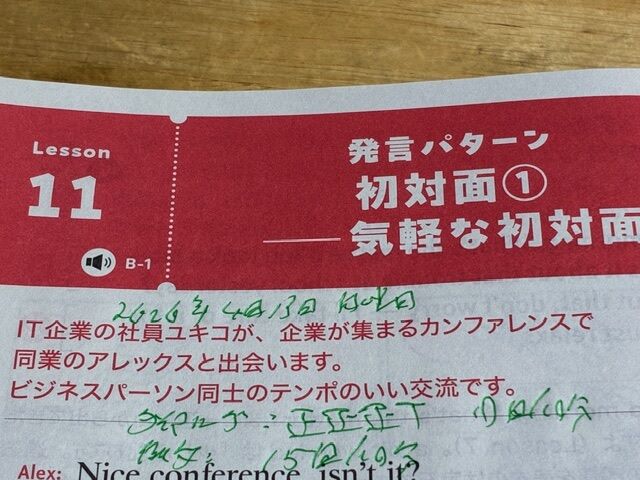 Lesson
11
B-1
発言パターン
初対面①
気軽な初対面
2026年4月13日 日曜日
IT企業の社員ユキコが、企業が集まるカンファレンスで
同業のアレックスと出会います。
ビジネスパーソン同士のテンポのいい交流です。
正正正丅
15回/10分
Alex: Nice conference, isn't it?